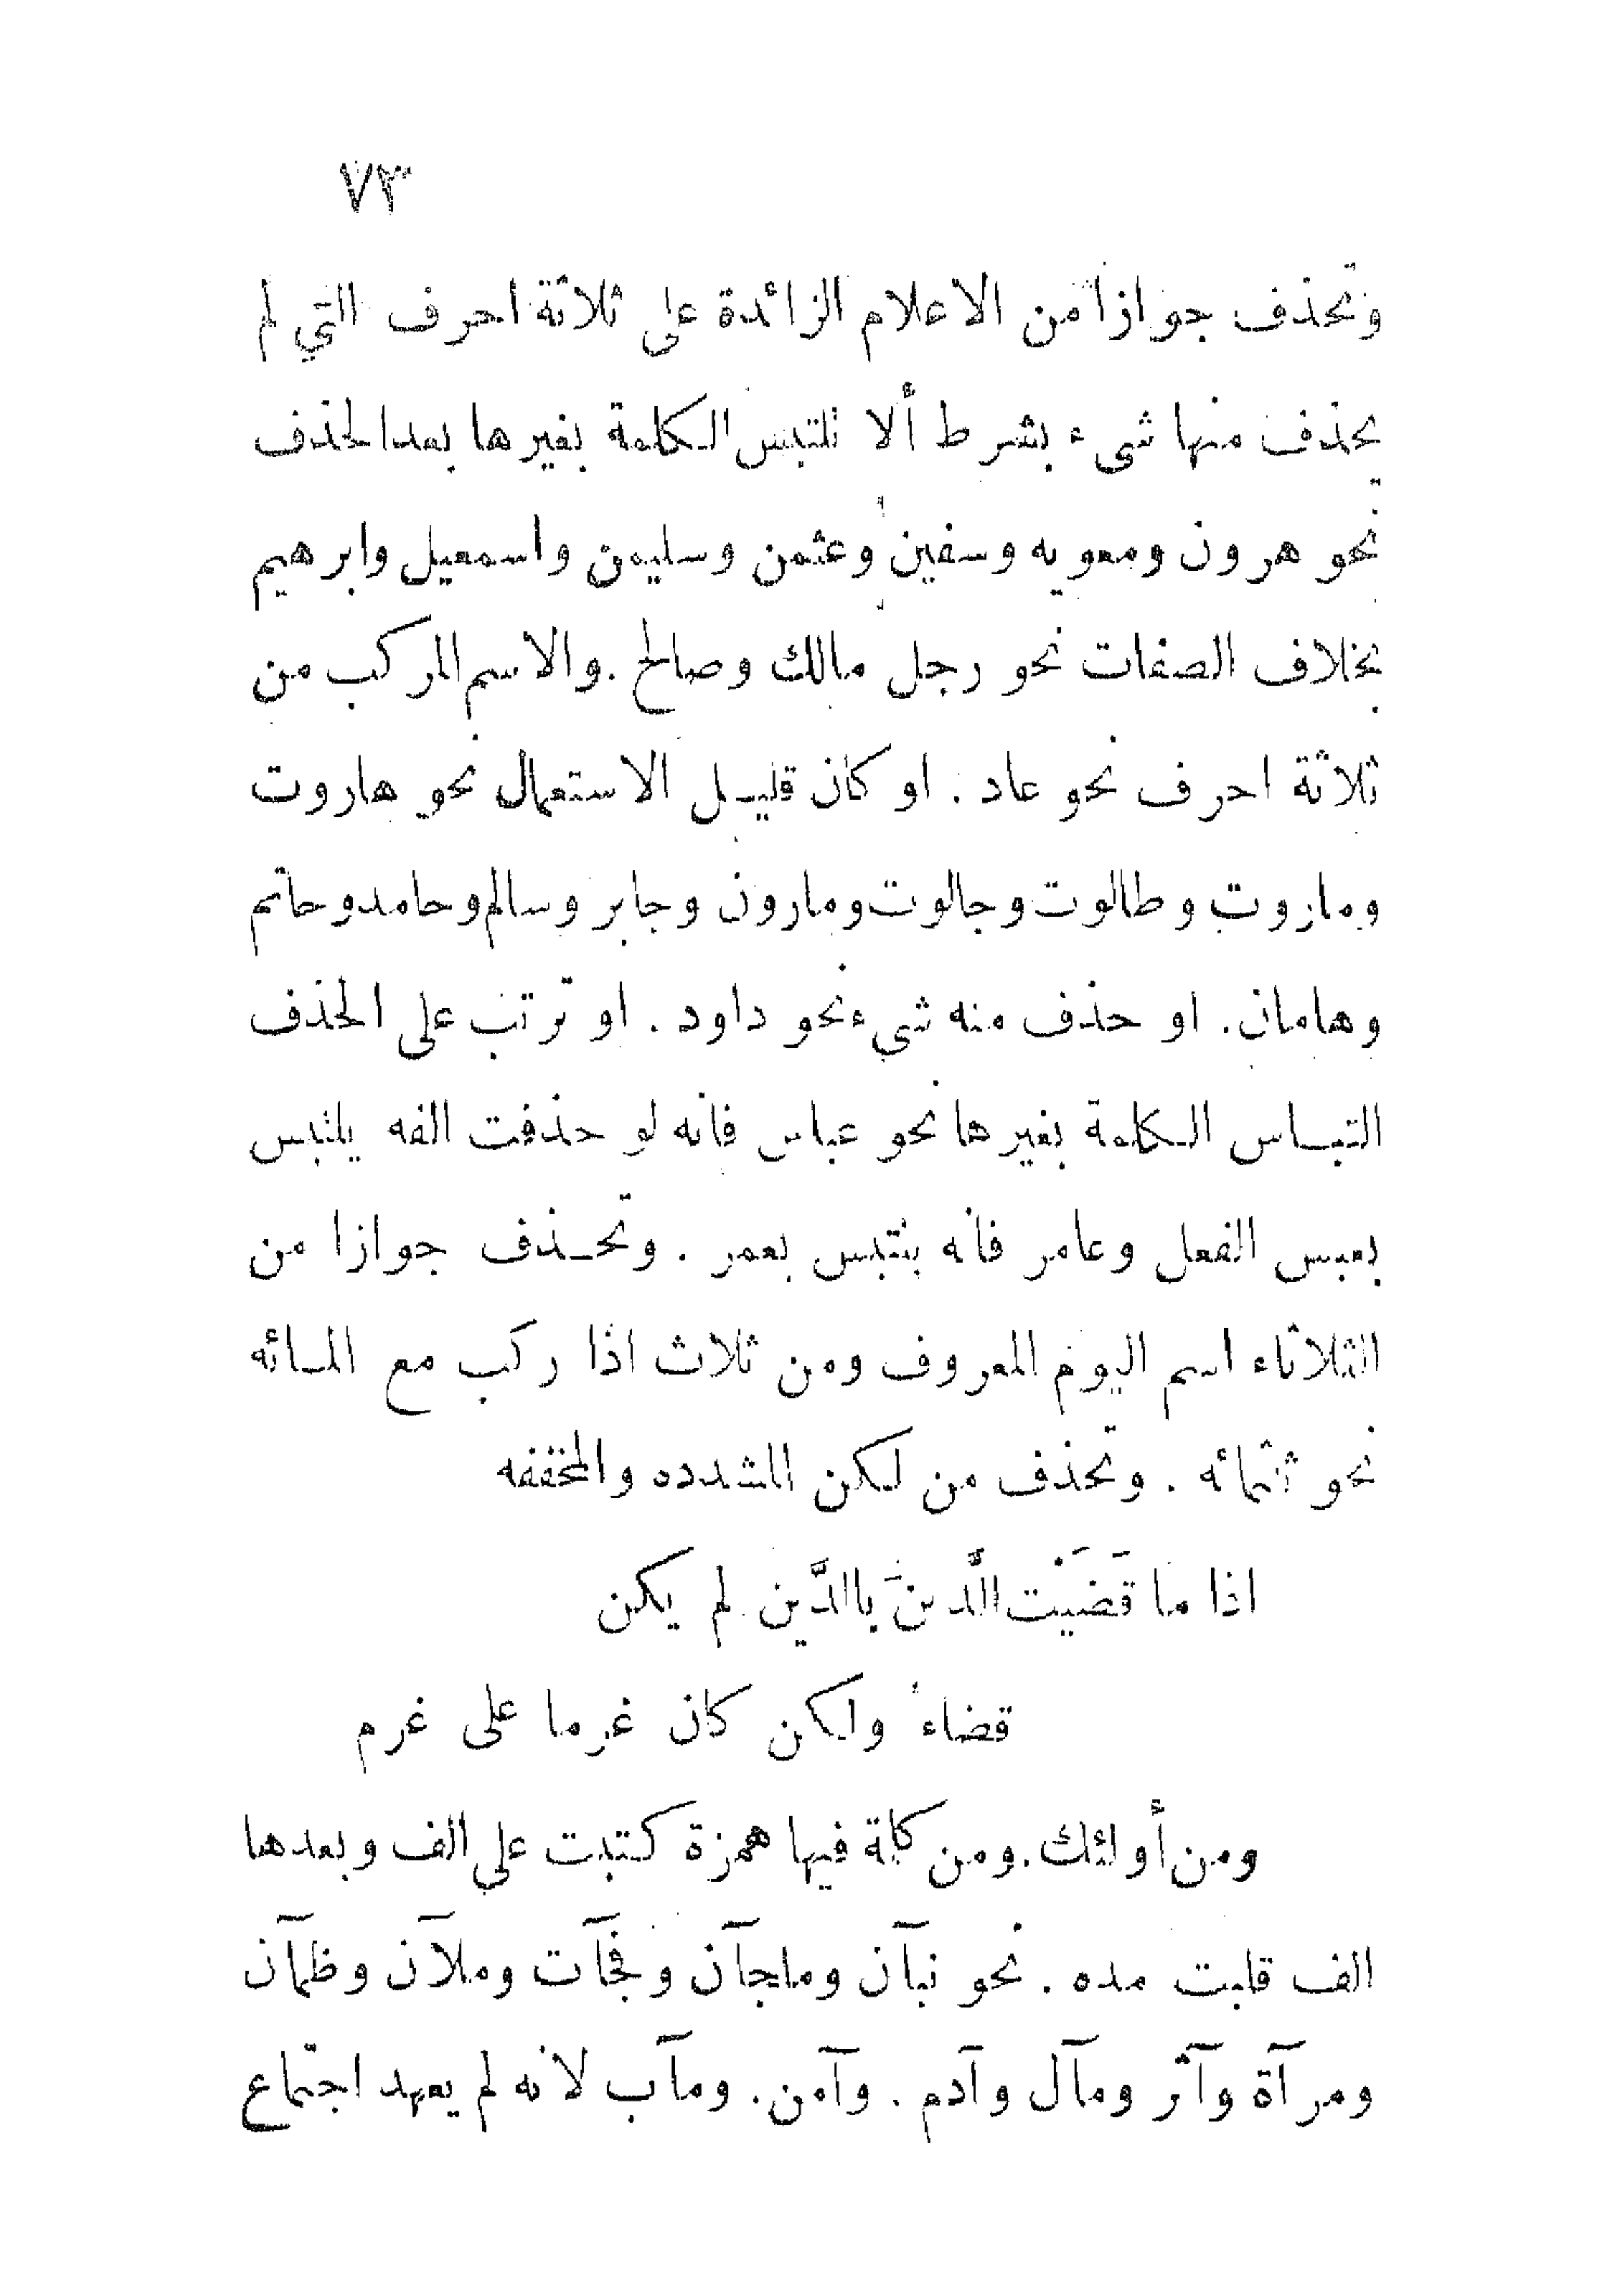 ٧٣
وتحذف جوازا من الاعلام الزائدة على ثلاثة احرف التي لم
يحذف منها شىء بشرط ألا تلتبس الكلمة بغيرها بعدالحذف
نحو هرون ومعويه وسفين وعثمن وسليمن واسمعيل وابرهيم
بخلاف الصفات نحو رجل مالك وصالح . والاسم المركب من
ثلاثة احرف نحو عاد . او كان قليل الاستعمال نحو هاروت
وماروت وطالوت وجالوت ومارون وجابر وسالم وحامد وحاتم
وهامان . او حذف منه شىء نحو داود . او ترتب على الحذف
التباس الكلمة بغيرها نحو عباس فانه لو حذفت الفه يلتبس
بعبس الفعل وعامر فانه يلتبس بعمر . وتحذف جوازا من
الثلاثاء اسم اليوم المعروف ومن ثلاث اذا ركب مع المائه
نحو ثلثمائه . وتحذف من لكن المشدده والمخففه
اذا ما قَضَيْت الَّدينَ بالدَّين لم يكن
قضاء ولكن كان غرما على غرم
ومن أولئك . ومن كلمة فيها همزة كتبت على الف وبعدها
الف قلبت مده . نحو نبآن وملجآن وفجآت وملآن وظمآن
ومرآة وآثر ومآل وآدم . وآمن . ومآب لانه لم يعهد اجتماع